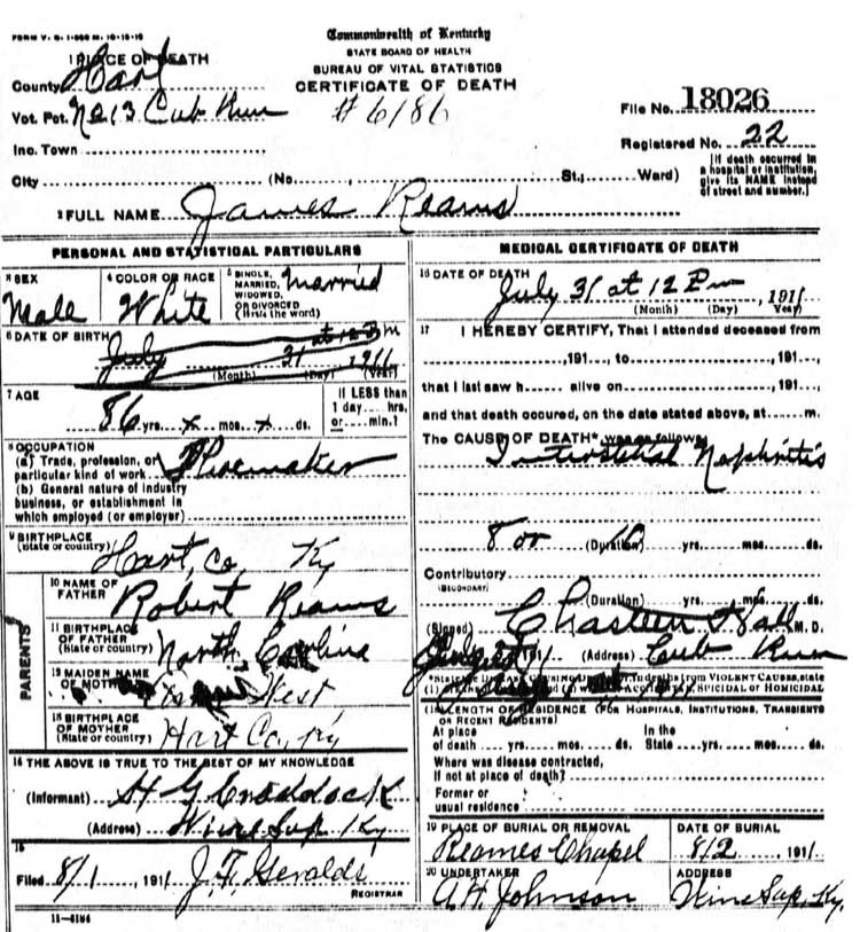 FORM V. S. 1-500 M. 10-18-10
Commonwealth of Kentucky
STATE BOARD OF HEALTH
BUREAU OF VITAL STATISTICS
CERTIFICATE OF DEATH
1 PLACE OF DEATH
County Hart
Vot. Pct. No 13 Cub Run
# 6186
File No. 18026
Inc. Town
Registered No. 22
City (No. , St.; Ward)
[If death occurred in a hospital or institution, give its NAME instead of street and number.]
2 FULL NAME James Reams
PERSONAL AND STATISTICAL PARTICULARS
3 SEX Male
4 COLOR OR RACE White
5 SINGLE, MARRIED, WIDOWED, OR DIVORCED (Write the word) Married
6 DATE OF BIRTH
July 31 1911 at 12 Pm
(Month) (Day) (Year)
7 AGE
86 yrs. x mos. x ds.
If LESS than 1 day.... hrs. or.... min.?
8 OCCUPATION
(a) Trade, profession, or particular kind of work Shoemaker
(b) General nature of industry
business, or establishment in
which employed (or employer)
9 BIRTHPLACE
(State or country) Hart, Co, Ky
PARENTS
10 NAME OF FATHER Robert Reams
11 BIRTHPLACE OF FATHER (State or country) North Carolina
12 MAIDEN NAME OF MOTHER West
13 BIRTHPLACE OF MOTHER (State or country) Hart Co., Ky
14 THE ABOVE IS TRUE TO THE BEST OF MY KNOWLEDGE
(Informant) H G Craddock
(Address) Winesap Ky
15
Filed 8/1, 1911 J. F. Geralds
REGISTRAR
11-6184
MEDICAL CERTIFICATE OF DEATH
16 DATE OF DEATH
July 31 at 12 Pm, 1911
(Month) (Day) Year)
17 I HEREBY CERTIFY, That I attended deceased from
,191..., to ,191...,
that I last saw h alive on ,191...,
and that death occured, on the date stated above, at m.
The CAUSE OF DEATH* was as follows
Interstitial Nephritis
8 or 10 (Duration) yrs. mos. ds.
Contributory
(SECONDARY)
(Duration) yrs. mos. ds.
(Signed) Chasteen Hall M. D.
(Address) Cub Run
(1) LENGTH OF RESIDENCE (FOR HOSPITALS, INSTITUTIONS, TRANSIENTS
OR RECENT RESIDENTS)
At place of death .... yrs. mos. ds. In the State .... yrs. mos. ds.
Where was disease contracted,
If not at place of death?
Former or
usual residence
19 PLACE OF BURIAL OR REMOVAL
Reames Chapel
DATE OF BURIAL
8/2, 1911
20 UNDERTAKER
A. H. Johnson
ADDRESS
Winesap, Ky.